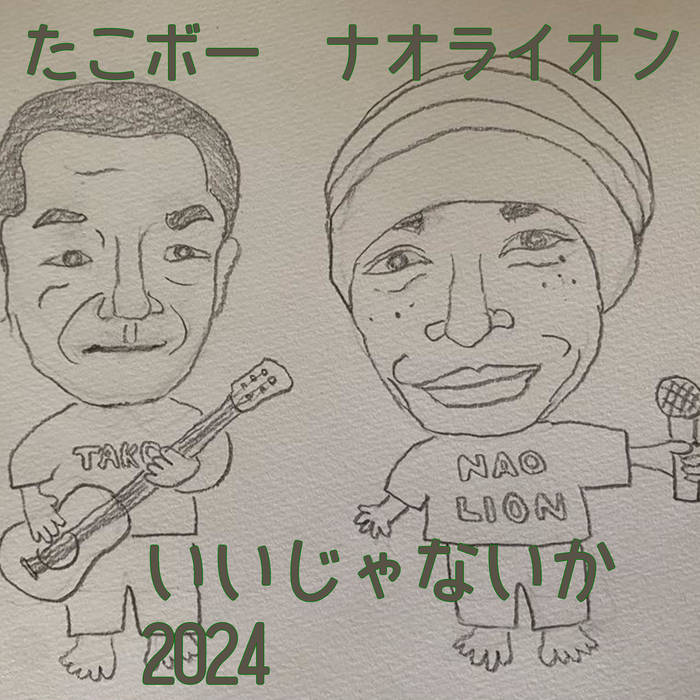 たこボー　ナオライオン
TAKO
NAO
LION
いいじゃないか
2024